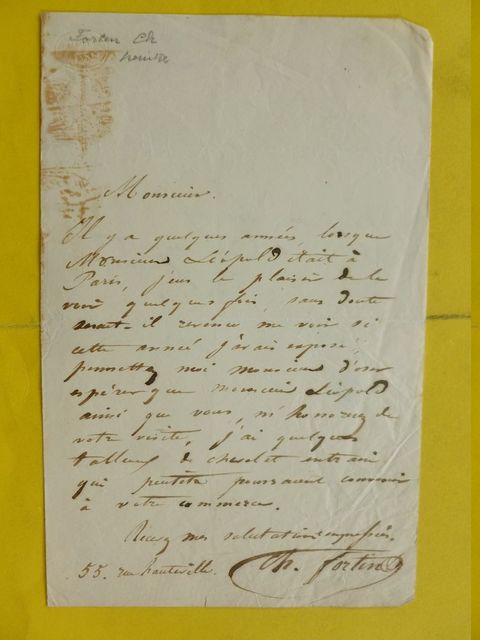 Fortin Ch
peintre
Monsieur.
Il y a quelques années, lorsque
Monsieur Léopold était à
Paris, j'eus le plaisir de le
voir quelques fois, sans doute
aurait-il revenu me voir si
cette année j'avais exposé,
permettez moi monsieur d'oser
espérer que monsieur Léopold
ainsi que vous, m'honorerez de
votre visite, j'ai quelques
tableaux de chevalet en train
qui peutêtre pourraient convenir
à votre commerce.
Recevez mes salutations empressées.
55. rue hauteville. Ch. Fortin